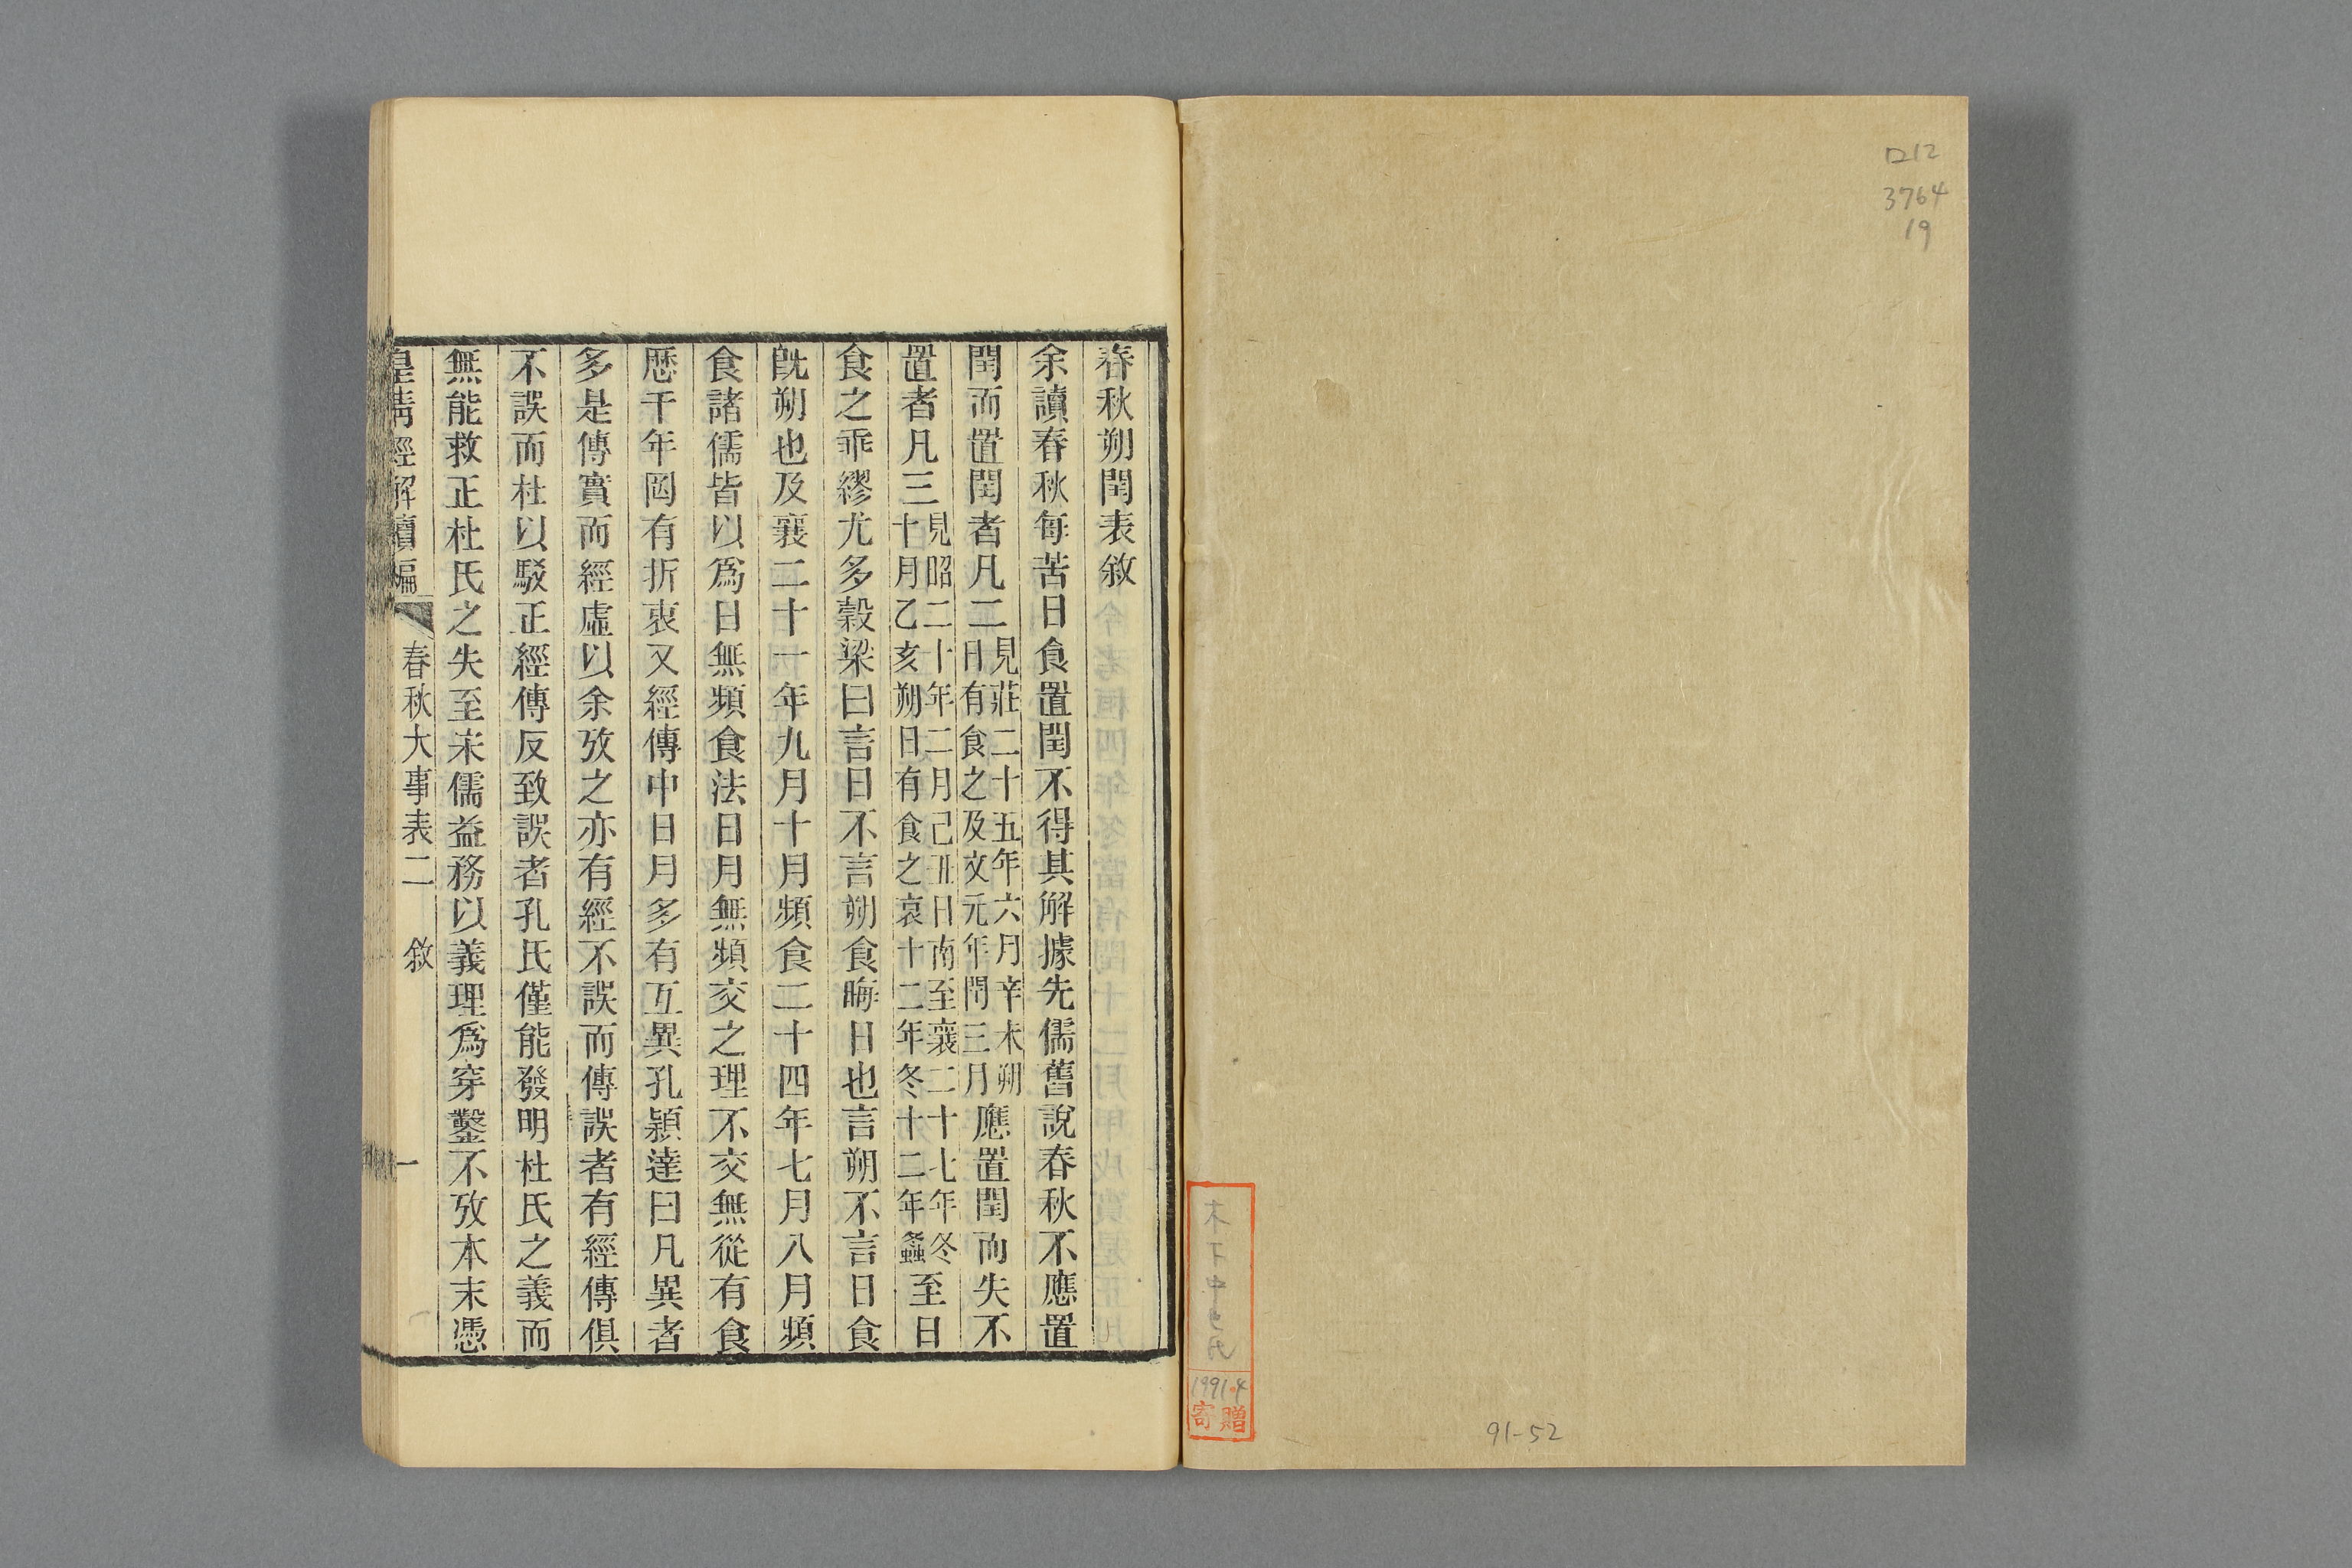 D12
3764
19
91-52
木下
1991.4
寄贈
春秋朔閏表敘
余讀春秋每苦日食置閏不得其解據先儒舊說春秋不應置
閏而置閏者凡二見莊二十五年六月辛未朔日有食之及文元年閏三月應置閏而失不
置者凡三見昭二十年二月己丑日南至襄二十七年冬十月乙亥朔日有食之哀十二年冬十二年螽至日
食之乖繆尤多穀梁曰言日不言朔食晦日也言朔不言日食
旣朔也及襄二十一年九月十月頻食二十四年七月八月頻
食諸儒皆以爲日無頻食法日月無頻交之理不交無從有食
歷千年罔有折衷又經傳中日月多有互異孔潁達曰凡異者
多是傳實而經虛以余攷之亦有經不誤而傳誤者有經傳俱
不誤而杜以駁正經傳反致誤者孔氏僅能發明杜氏之義而
無能救正杜氏之失至宋儒益務以義理爲穿鑿不攷本末憑
皇清經解續編 春秋大事表二 敘 一